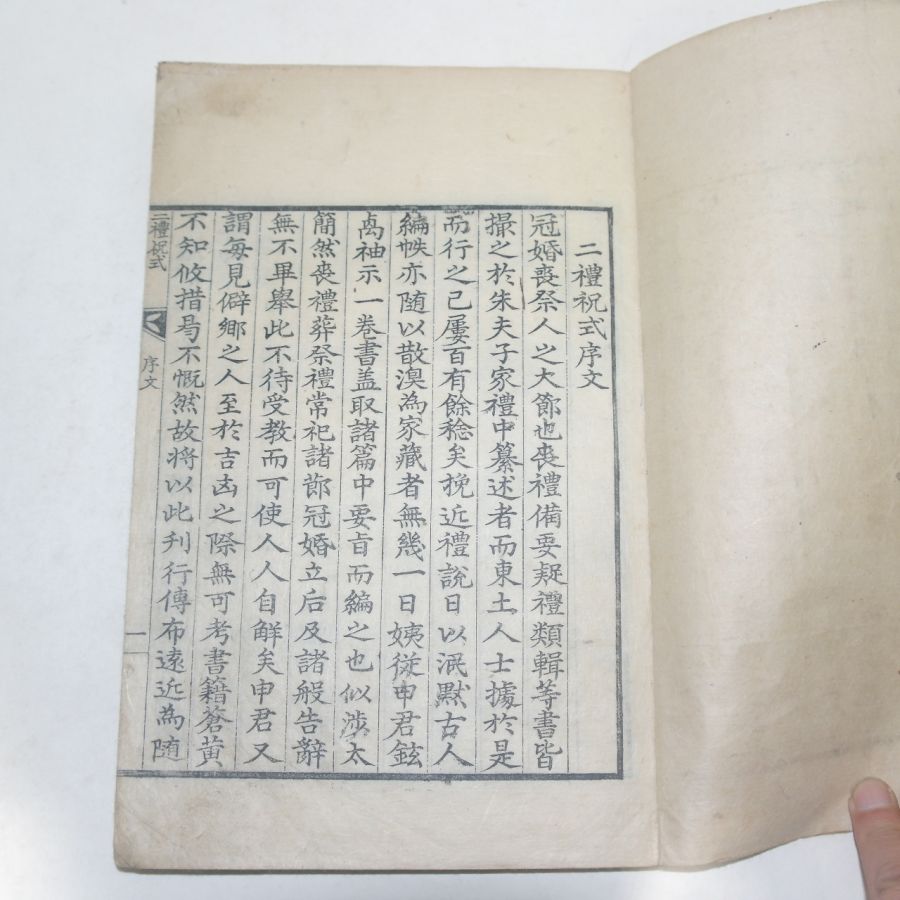 二禮祝式序文
冠婚喪祭人之大節也喪禮備要疑禮類輯等書皆
撮之於朱夫子家禮中纂述者而東土人士據於是
而行之已屢百有餘稔矣挽近禮說日以泯默古人
編帙亦隨以散渙為家藏者無幾一日姨從申君鉉
卨袖示一卷書盖取諸篇中要旨而編之也似涉太
簡然喪禮葬祭禮常祀諸節冠婚立后及諸般告辭
無不畢舉此不待受教而可使人人自解矣申君又
謂每見僻鄉之人至於吉凶之際無可考書籍蒼黃
不知攸措曷不慨然故將以此刊行傳布遠近為隨
二禮祝式
序文
一